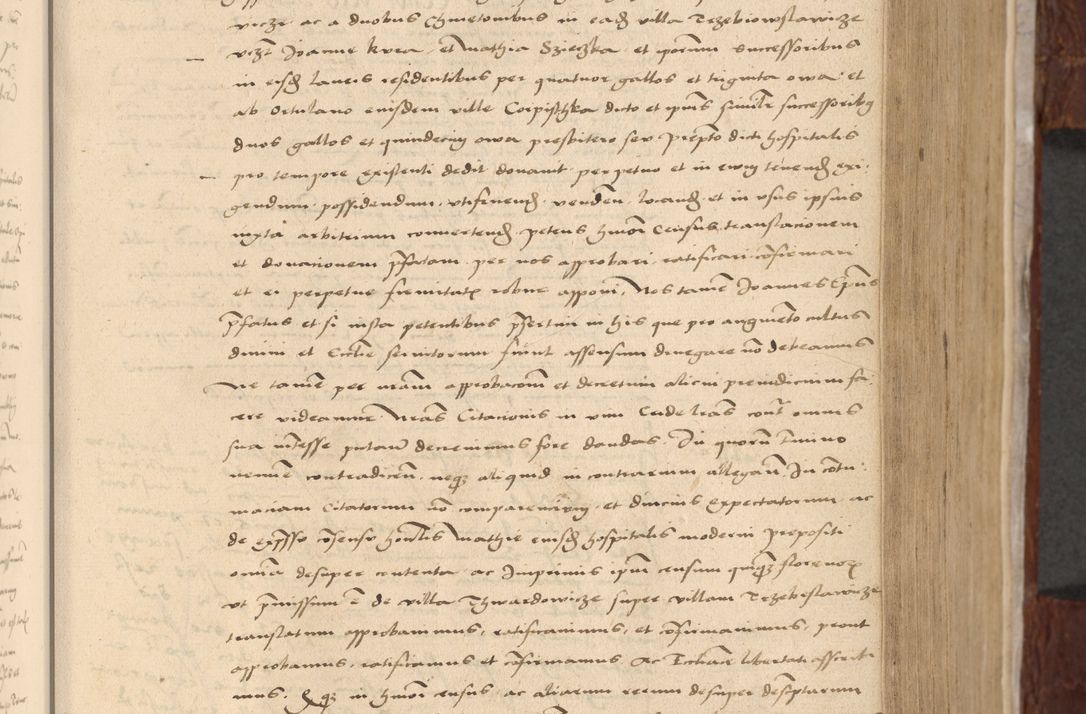 vicze ac a duobus Chmetonibus in eadꝫ villa Trzebiowslawicze
vczt Joanne kura et Mathia Szieczka et ipsorum successoribus
in eisdꝫ laneis residentibus per quatuor gallos et triginta owa et
ab Ortulano eiusdem ville Corpisthka dicto et ipius similr successoribꝫ
duos gallos et quindecim owa presbitero seu Prepto dicti hospitalis
pro tempore existenti dedit donavit perpetuo et in ewm tenendꝫ exi
gendum possidendum utifruendꝫ venden locandꝫ et in vsus ipsius
iuxta arbitrium convertendꝫ petens hmoi Census translacionem
et donacionem pfatam per nos approbari ratificari cofirmari
et ei perpetue firmitatis robur apponi, Nos tamē Joannes Epus
pfatus et si iusta petentibus psertim in his que pro augmēto cultus
divini et Ecclie servitorum fiunt assensum denegare nō debeamus
Ne tamē per nram approbacom et decretum alicui preiudicium fa
cere videamur Nras Citacionis in vim Cride lras contra omnes
sua interesse putan decrevimus fore dandas. In quorū Tmino
nemine contradicen neqꝫ aliquid in contrarium allegan. In cotu
maciam Citatorum nō comparentium et diucius expectatorum ac
de expsso cosensu honlis Mathie eiusdꝫ hospitalis moderni Prepositi
omnia desuper contenta ac Imprimis ipm censum quinqꝫ florenorꝫ
ut pmissum ē de villa Thwardowicze super villam Trzebieslawicze
translatum approbavimus, ratificavimus, et cofirmavimus, prout
approbamus, ratificamus et cofirmamus Ac Ecclīastice libertati asscribi
mus. Ex qꝫ in hmoi census ac aliarum rerum desuper descriptarum